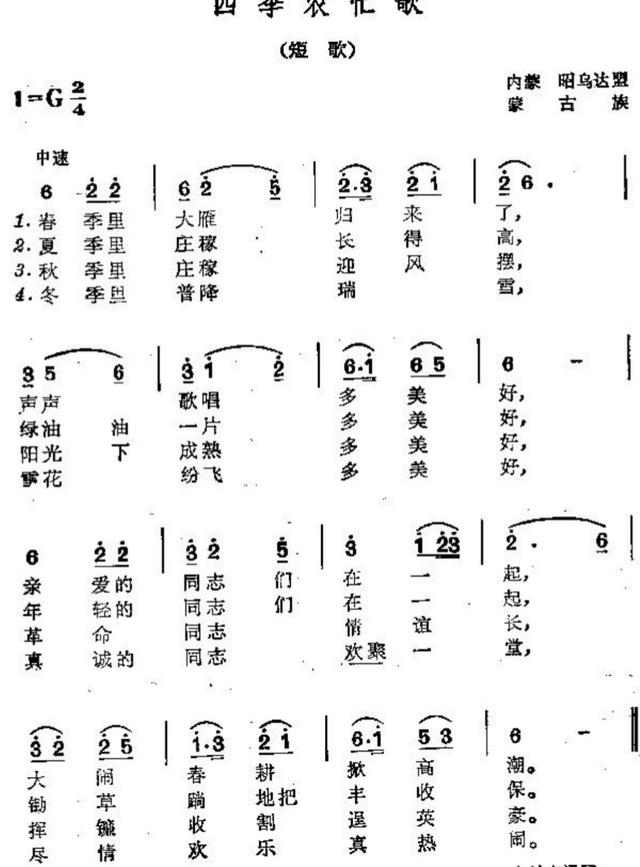 四季农忙歌
（短 歌）
1=G 2/4
内蒙 昭乌达盟
蒙 古 族
中速
6 2 2 | 6 2 5 | 2·3 2 1 | 2 6 ·
1.春 季里 大雁 归 来 了，
2.夏 季里 庄稼 长 得 高，
3.秋 季里 庄稼 迎 风 摆，
4.冬 季里 普降 瑞 雪，
3 5 6 | 3 1 2 | 6·1 6 5 | 6 －
声声 歌唱 多 美 好，
绿油 油 一片 多 美 好，
阳光 下 成熟 多 美 好，
雪花 纷飞 多 美 好，
6 2 2 | 3 2 5 | 3 1 23 | 2· 6
亲 爱的 同志 们 在 一 起，
年 轻的 同志 们 在 一 起，
革 命 同志 情 谊 长，
真 诚的 同志 欢聚 一 堂，
3 2 2 5 | 1·3 2 1 | 6·1 5 3 | 6 －
大 闹 春 耕 掀 高 潮。
锄 草 耥 地把 丰 收 保。
挥 镰 收 割 逞 英 豪。
尽 情 欢 乐 真 热 闹。